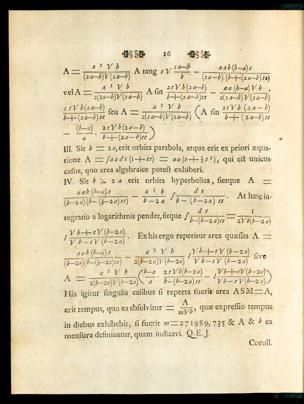 16
A = a²√b / (2a-b)√(2a-b) A tang t√(2a-b)/b − aab(b-a)t / (2a-b)(b+(2a-b)tt)
vel A = a²√b / 2(2a-b)√(2a-b) A sin 2t√b(2a-b) / b+(2a-b)tt − aa(b-a)√b / 2(2a-b)√(2a-b) ·
2t√b(2a-b) / b+(2a-b)tt seu A = a²√b / 2(2a-b)√(2a-b) (A sin 2t√b(2a-b) / b+(2a-b)tt
− (b-a)/a · 2t√b(2a-b) / b+(2a-b)tt)
III. Sit b = 2a, erit orbita parabola, atque erit ex priori æqua-
tione A = ∫aadt(1+tt) = aa(t+⅓t³), qui est unicus
casus, quo area algebraice potest exhiberi.
IV. Sit b > 2a erit orbita hyperbolica, fietque A =
aab(b-a)t / (b-2a)(b-(b-2a)tt) − a²b / b-2a ∫ dt / b-(b-2a)tt. At hæc in-
tegratio a logarithmis pendet, fitque ∫ dt / b-(b-2a)tt = 1 / 2√b(b-2a)
l √b+t√(b-2a) / √b-t√(b-2a). Ex his ergo reperitur area quæsita A =
aab(b-a)t / (b-2a)(b-(b-2a)tt) − a²√b / 2(b-2a)√(b-2a) l √b+t√(b-2a) / √b-t√(b-2a) sive
A = a²√b / 2(b-2a)√(b-2a) (b-a / a · 2t√b(b-2a) / b-(b-2a)tt − l √b+t√(b-2a) / √b-t√(b-2a))
His igitur singulis casibus si reperta fuerit area ASM=A,
erit tempus, quo ea absolvitur = A / m√b, quæ expressio tempus
in diebus exhibebit, si fuerit m=271989,735 & A & b ea
mensura definiantur, quam indicavi. Q.E.J.
Coroll.